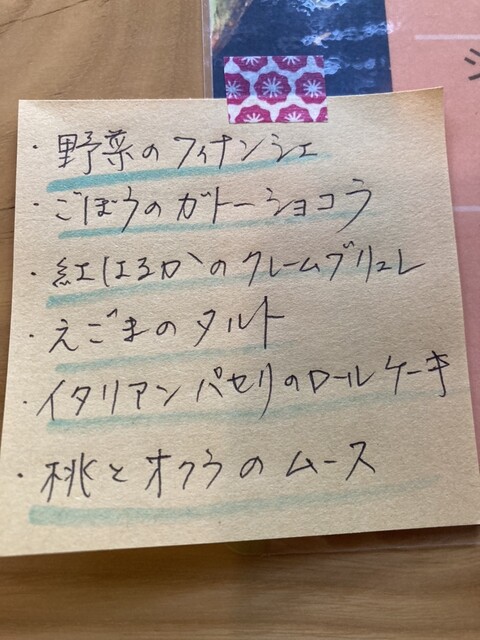 ・野菜のフィナンシェ
・ごぼうのガトーショコラ
・紅はるかのクレームブリュレ
・えごまのタルト
・イタリアンパセリのロールケーキ
・桃とオクラのムース